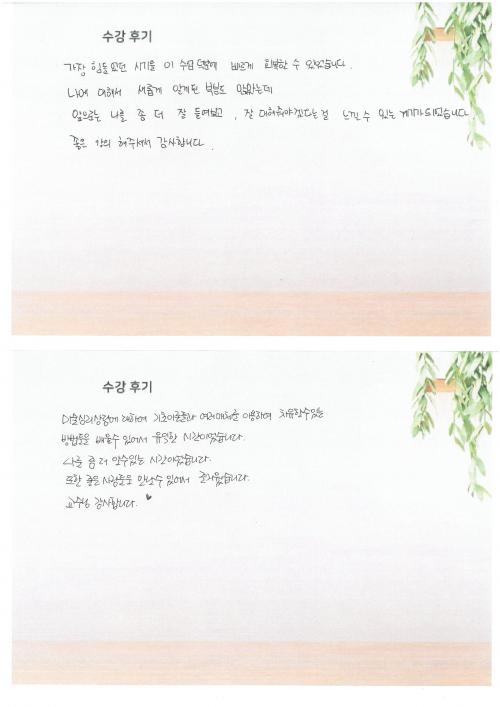 수강 후기
가장 힘들었던 시기를 이 수업 덕분에 빠르게 회복할 수 있었습니다.
나에 대해서 새롭게 알게된 부분도 많았는데
앞으로는 나를 좀 더 잘 들여보고, 잘 대해줘야겠다는걸 느낀 수 있는 계기가 되었습니다
좋은 강의 해주셔서 감사합니다.
수강 후기
미술심리상담에 대하여 기초이론들과 여러매체를 이용하여 치유할수있는
방법들을 배울수 있어서 유익한 시간이었습니다.
나를 좀 더 알수있는 시간이었습니다.
또한 좋은 사람들을 만날수 있어서 즐거웠습니다.
교수님 감사합니다. ♥